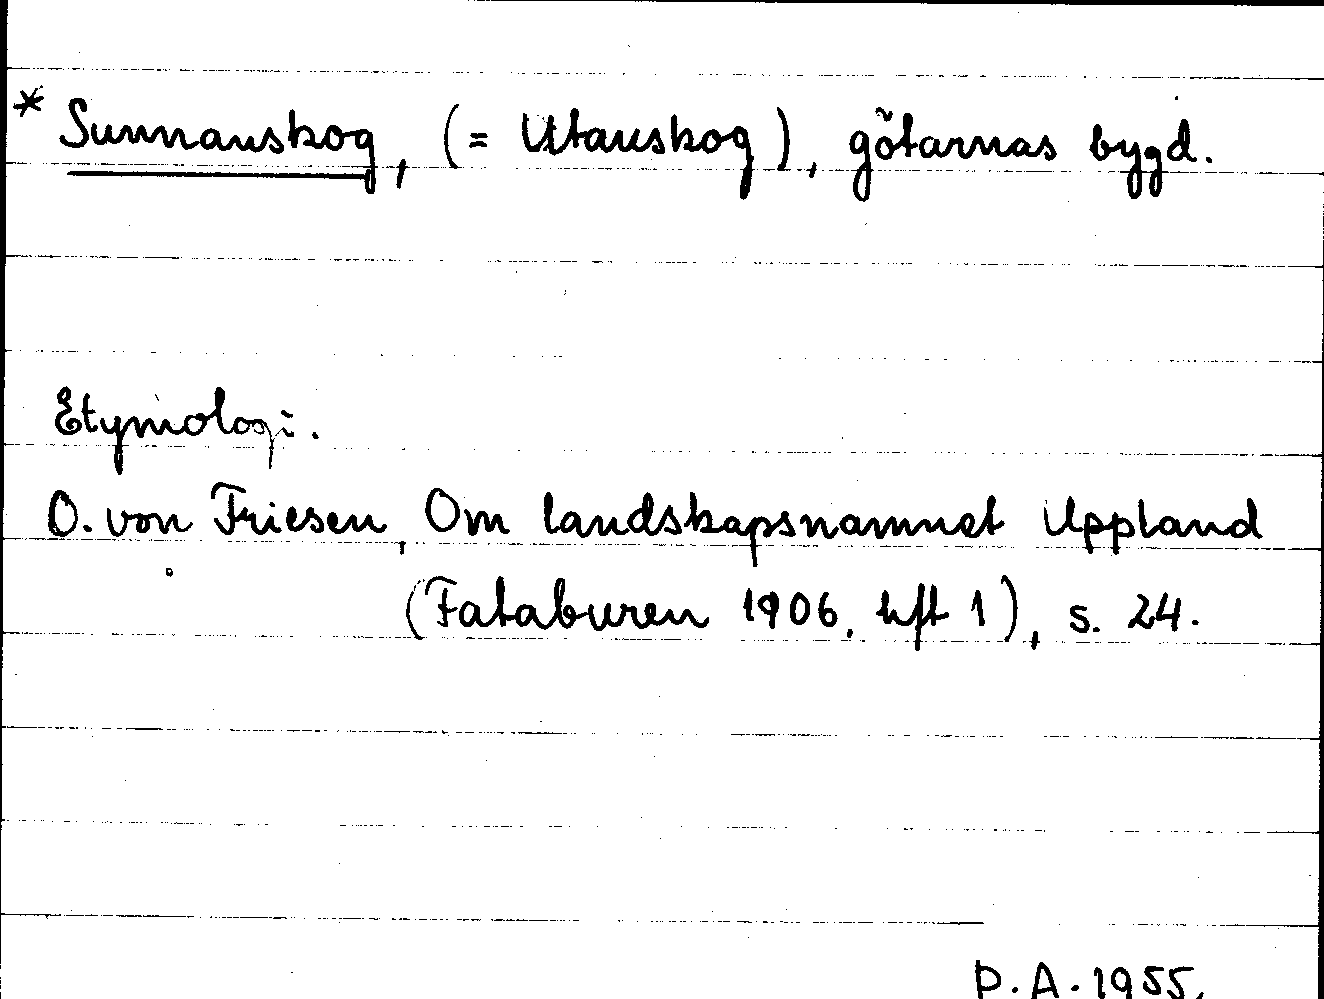 * Sunnanskog, (= Utanskog), götarnas bygd.
Etymologi.
O. von Friesen, Om landskapsnamnet Uppland
(Fataburen 1906, hft 1), s. 24.
P.A. 1955.